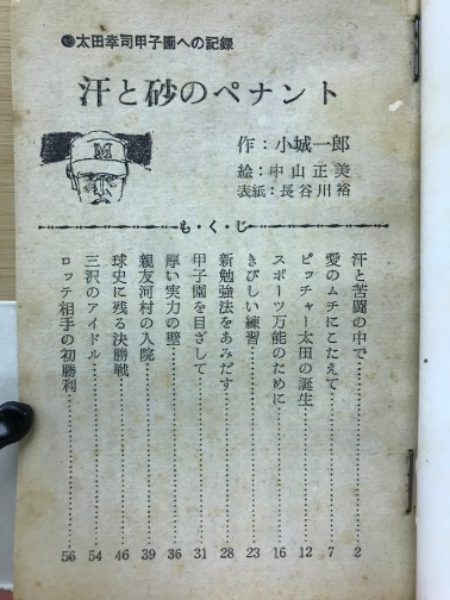 ●太田幸司甲子園への記録
汗と砂のペナント
M
作：小城一郎
絵：中山正美
表紙：長谷川裕
も・く・じ
汗と苦闘の中で……2
愛のムチにこたえて……7
ピッチャー太田の誕生……12
スポーツ万能のために……16
きびしい練習……23
新勉強法をあみだす……28
甲子園を目ざして……31
厚い実力の壁……36
親友河村の入院……39
球史に残る決勝戦……46
三沢のアイドル……54
ロッテ相手の初勝利……56